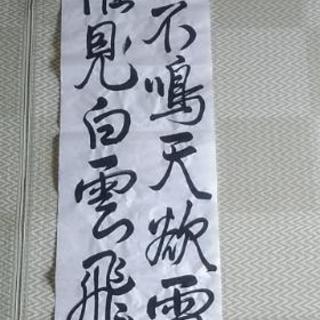 不鳴天欲雪
見白雲飛